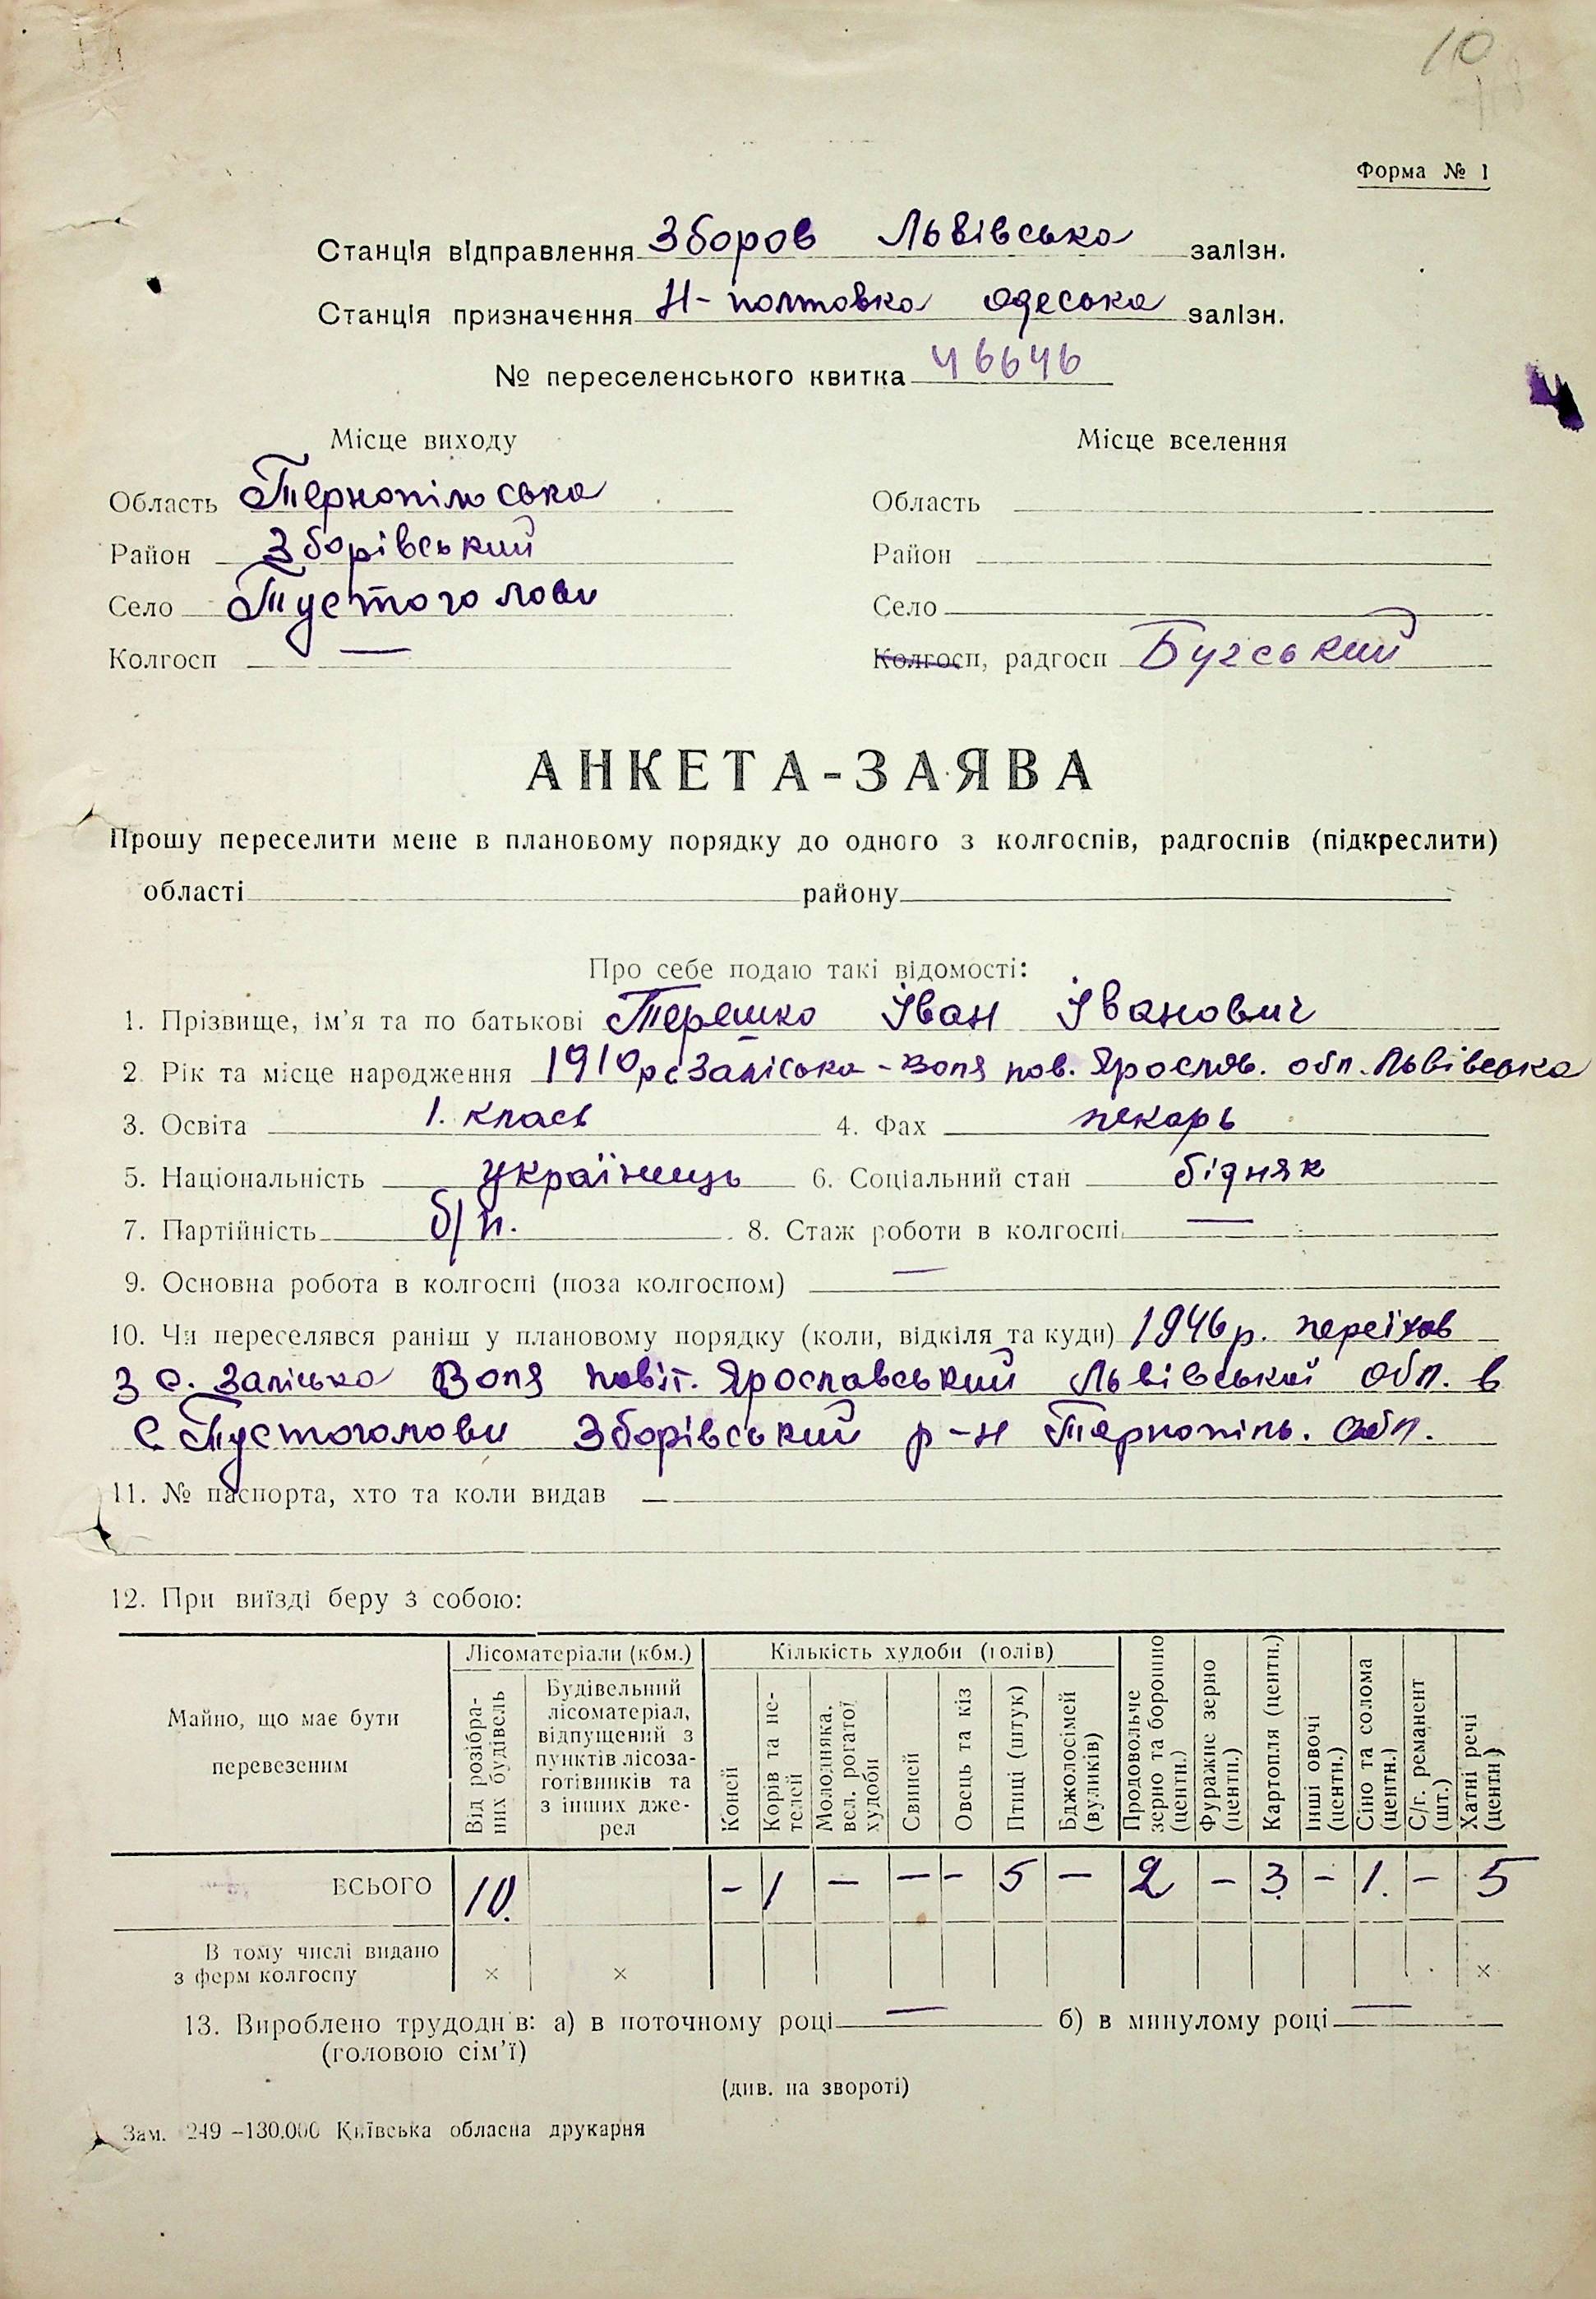 10
Форма № 1
Станція відправлення Зборов Львівська залізн.
Станція призначення Н-полтовка одеська залізн.
№ переселенського квитка 46646
Місце виходу Місце вселення
Область Тернопільська Область
Район Зборівський Район
Село Пустоголови Село
Колгосп — Колгосп, радгосп Бугський
АНКЕТА-ЗАЯВА
Прошу переселити мене в плановому порядку до одного з колгоспів, радгоспів (підкреслити)
області району
Про себе подаю такі відомості:
1. Прізвище, ім’я та по батькові Терешко Іван Іванович
2. Рік та місце народження 1910р с Заліська-Воля пов.Ярослав. обл. Львівська
3. Освіта 1. клась 4. Фах пекарь
5. Національність українець 6. Соціальний стан бідняк
7. Партійність б/п. 8. Стаж роботи в колгоспі —
9. Основна робота в колгоспі (поза колгоспом) —
10. Чи переселявся раніш у плановому порядку (коли, відкіля та куди) 1946р. переїхав
з с. Заліська Воля повіт. Ярославський Львівської обл. в
с Пустоголови Зборівський р-н Тернопіль. обл.
11. № паспорта, хто та коли видав —
12. При виїзді беру з собою:
Майно, що має бути перевезеним
Лісоматеріали (кбм.) Кількість худоби (голів)
Від розібраних будівель
Будівельний лісоматеріал, відпущений з пунктів лісозаготівників та з інших джерел
Коней
Корів та нетелей
Молодняка, вел. рогатої худоби
Свиней
Овець та кіз
Птиці (штук)
Бджолосімей (вуликів)
Продовольче зерно та борошно (центн.)
Фуражне зерно (центн.)
Картопля (центн.)
Інші овочі (центн.)
Сіно та солома (центн.)
С/г. реманент (шт.)
Хатні речі (центн)
ВСЬОГО 10. - 1 - - - 5 - 2 - 3 - 1. - 5
В тому числі видано
з ферм колгоспу × × ×
13. Вироблено трудоднів: а) в поточному році — б) в минулому році —
(головою сім’ї)
(див. на звороті)
Зам. 249 —130.000 Київська обласна друкарня